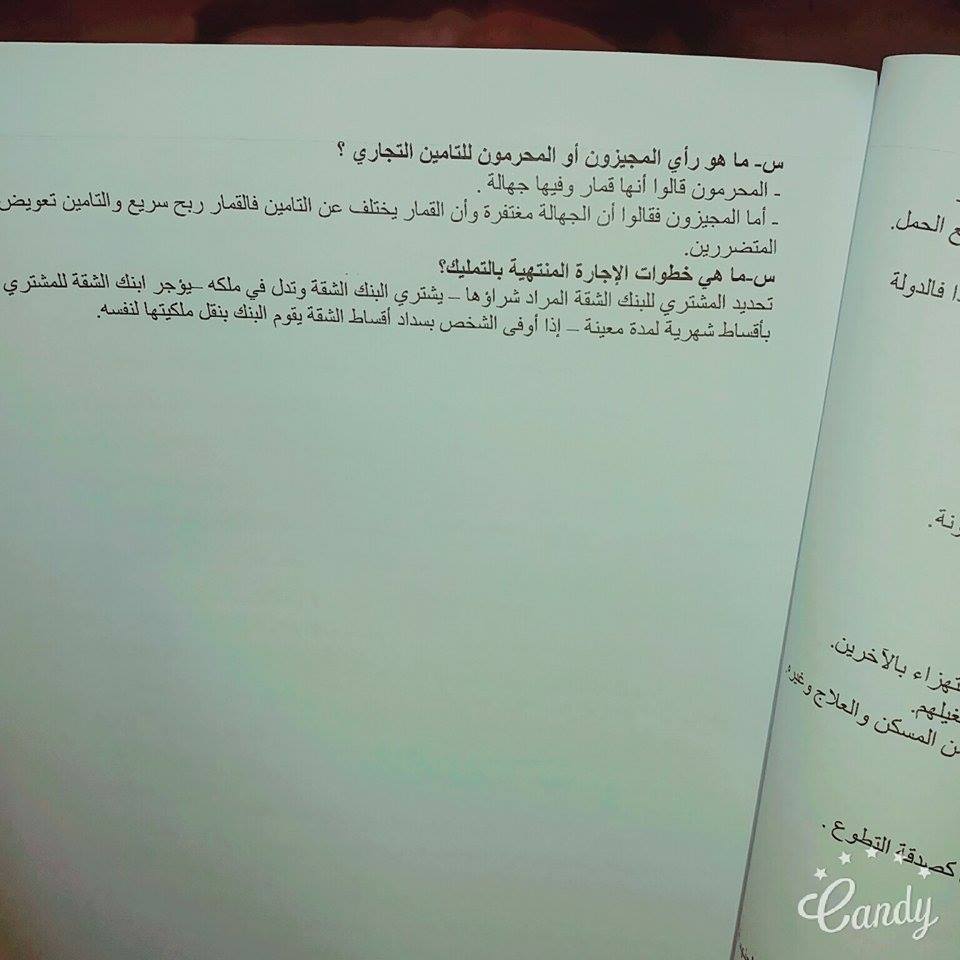 س- ما هو رأي المجيزون أو المحرمون للتامين التجاري ؟
- المحرمون قالوا أنها قمار وفيها جهالة .
- أما المجيزون فقالوا أن الجهالة مغتفرة وأن القمار يختلف عن التامين فالقمار ربح سريع والتامين تعويض
المتضررين.
س-ما هي خطوات الإجارة المنتهية بالتمليك؟
تحديد المشتري للبنك الشقة المراد شراؤها – يشتري البنك الشقة وتدل في ملكه –يؤجر ابنك الشقة للمشتري
بأقساط شهرية لمدة معينة – إذا أوفى الشخص بسداد أقساط الشقة يقوم البنك بنقل ملكيتها لنفسه.
ع الحمل.
ا فالدولة
رنة.
تهزاء بالآخرين.
غيلهم.
ن المسكن والعلاج وغيره
كصدقة التطوع .
Candy